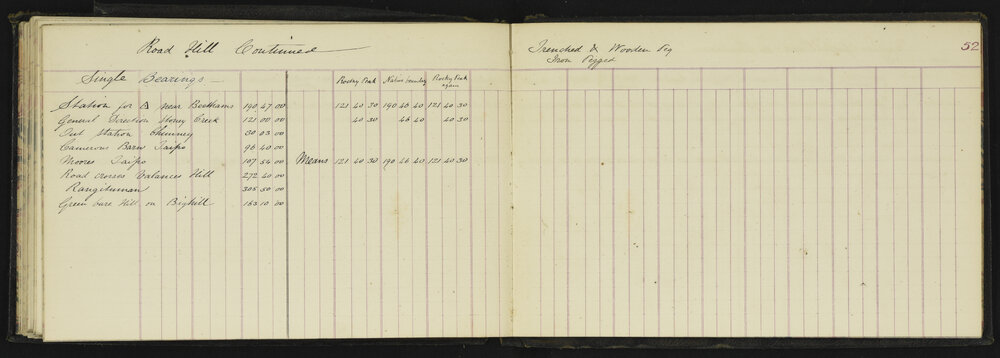 Road Hill Continued
Trenched & Wooden Peg
Iron Pegged
52
Single Bearings
Rocky Peak Native boundary Rocky Peak again
Station for Δ near Beethams 190 47 00 121 40 30 190 46 40 121 40 30
General Direction Stoney Creek 121 00 00 40 30 46 40 40 30
Out Station Chimney 30 03 00
Camerons Barn Taipo 96 40 00
Moores Taipo 107 54 00 Means 121 40 30 190 46 40 121 40 30
Road crosses Valances Hill 272 40 00
Rangitumau 305 50 00
Green bare Hill on Bighill 183 10 00